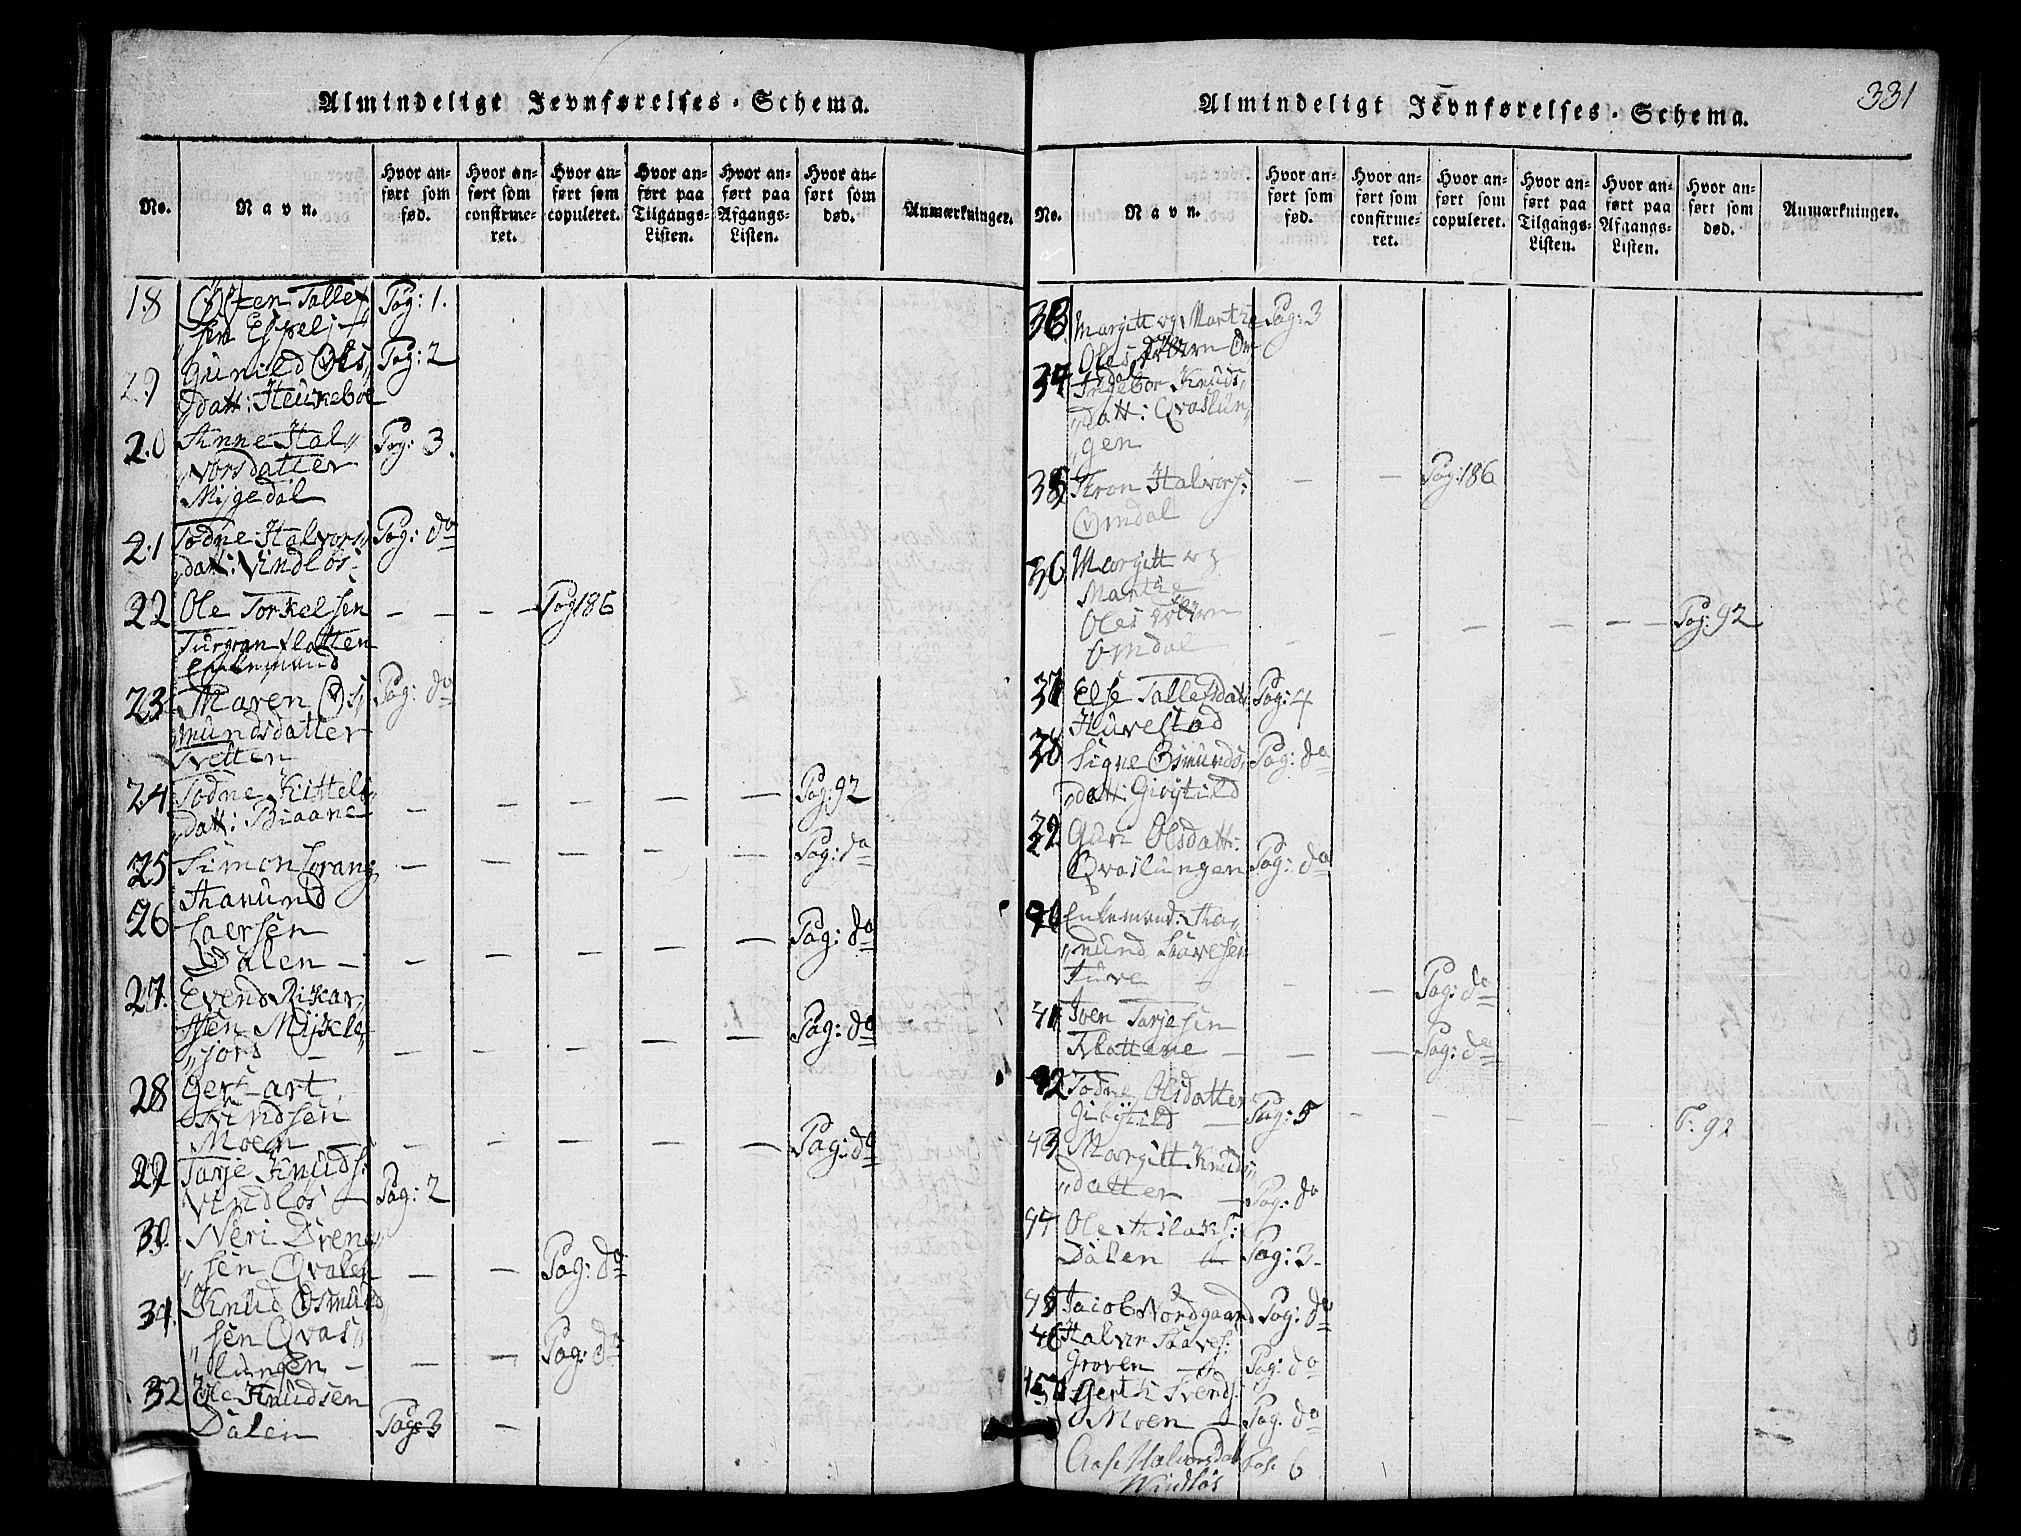 Almindeligt Jevnførelses-Schema.
No.
Navn.
Hvor an-
ført som
fød.
Hvor an-
ført som
confirme-
ret.
Hvor an-
ført som
copuleret.
Hvor an-
ført paa
Tilgangs-
Listen.
Hvor an-
ført paa
Afgangs-
Listen.
Hvor an-
ført som
død.
Anmærkninger.
18 Osten Tallef Pag: 1.
sen Espeli
Gunild Ols„ Pag: 2
29 datt: Heukeboe
20 Anne Hal„ Pag: 3.
„vorsdatter
Mijgedal
21 Todne Halvors„ Pag: do
„datt: Vindlos
22 Ole Torkelsen – – – Pag 186
Flatten
Enkemand
23 Maren Os„ Pag: do
mundsdatter
Tvetten
24 Todne Kittels„ – – – – – Pag: 92
datt: Biaane
25 Simon – – – – – Pag: do
26 Hamund
Saersen
Dalen – – – – – – Pag: do
27. Evend Rikar„
sen Mijkle„
„jord – – – – – – Pag: do
28 Gert art
Svindsen
Moen – – – – – – Pag: do
29 Tarje Knuds:
Vindlos – Pag: 2
30. Neri Drene„
„sen Qvalen – – Pag: do
31. Knud Osmund
„sen Qvas„
„lungen – – – Pag: do
32 Ole Knudsen
Dalen Pag 3 –
Almindeligt Jevnførelses-Schema.
331
No.
Navn.
Hvor an-
ført som
fød.
Hvor an-
ført som
confirme-
ret.
Hvor an-
ført som
copuleret.
Hvor an-
ført paa
Tilgangs-
Listen.
Hvor an-
ført paa
Afgangs-
Listen.
Hvor an-
ført som
død.
Anmærkninger.
33 Margitt og Marthe Pag: 3
Oles Om
dal
34 Ingebor Knuds„
„datt: Qvaslun„
„gen
35 Tron Halvors: – – Pag: 186
Omdal
36 Margitt og
Marthe
Oles – – – – – Pag: 92
Omdal
37 Else Tallefsdatt: Pag: 4
Huvestad
38 Signe Osmunds„ Pag: do
„datt: Giøjtild
39 Guri Olsdatt:
Qvaslungen Pag: do
40 Enkemand: Ha„
„mund Saavesen
Juve – – Pag: do
41 Joen Tarjesen
Flattene – – – Pag: do
42 Todne Olsdatter
Pag: 5 – – – – P: 92
43 Margitt Knuds„
„datter – Pag: do
44 Ole Aslaks:
Dalen – Pag: 3.
45 Jacob Nordgaard Pag: do
46 Halvor Saaves:
Groven – Pag: do
Gert K Svends
Moen – Pag: do
Aase Halvorsdat 6
Windløs